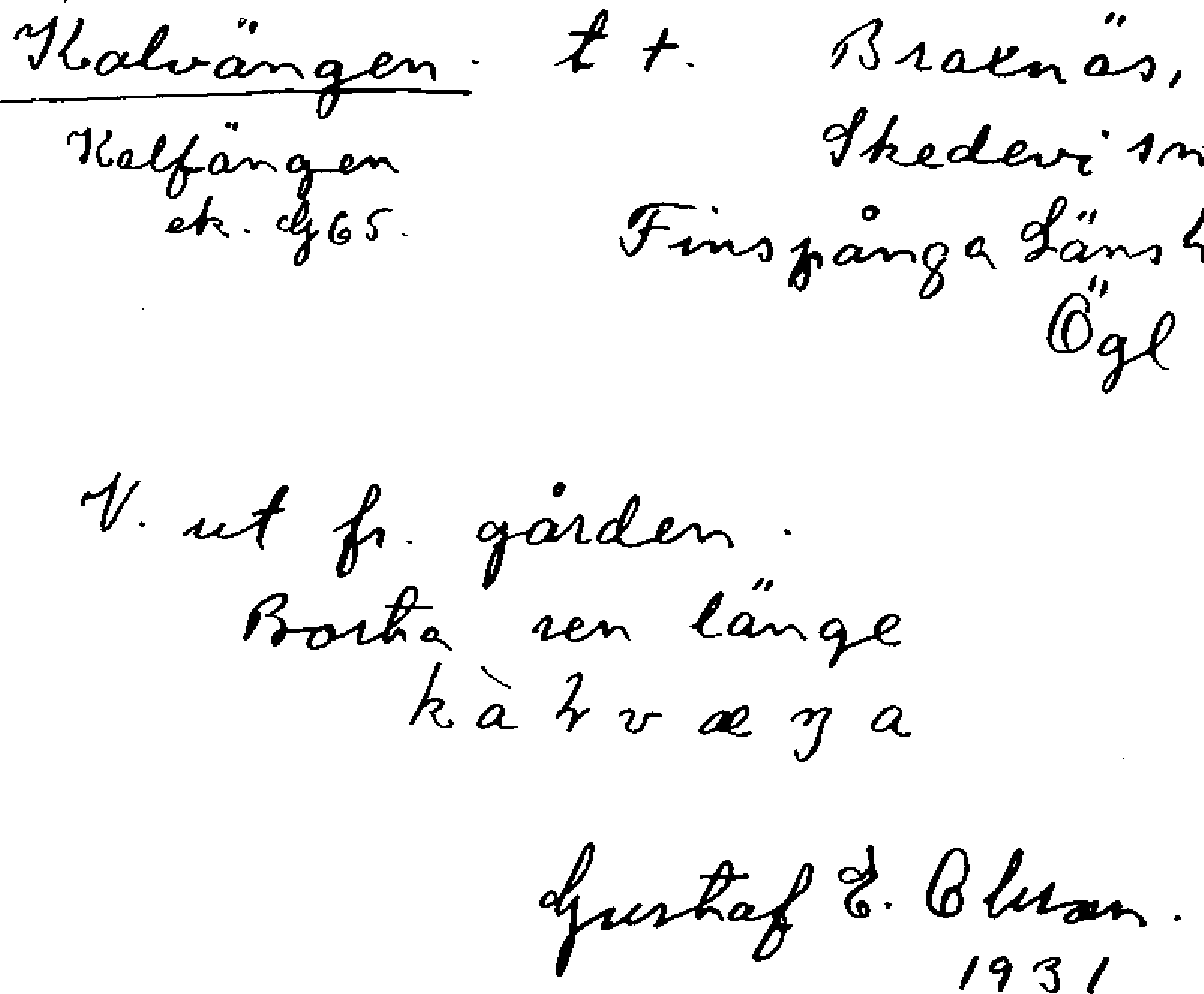 Kalvängen. t +. Braxnäs,
Kalfängen Skedevi sn
ek. G65. Finspånga Läns h
Ögl
V. ut fr. gården.
Borta sen länge
k à ɫ v æ ŋ a
Gustaf E. Olsson.
1931